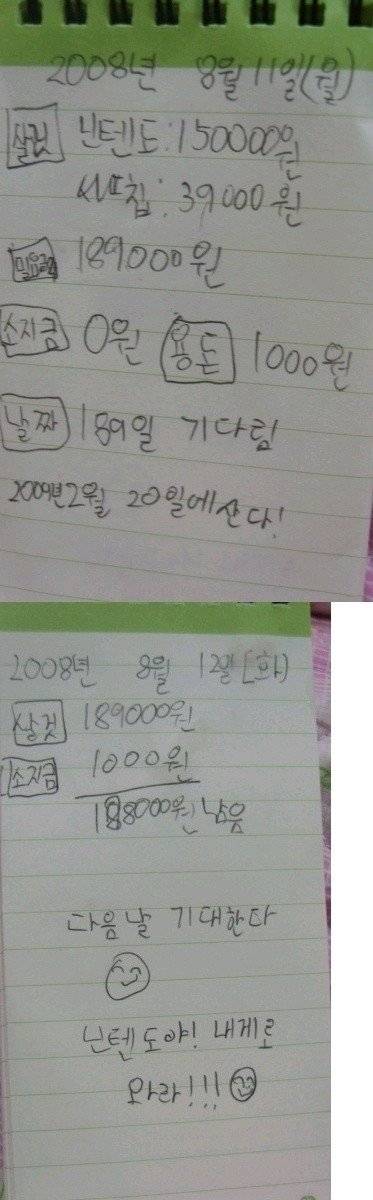 2008년 8월 11일(월)
살것 닌텐도:150000원
싸따칩:39000원
필요금액 189000원
소지금 0원 용돈 1000원
날짜 189일 기다림
2009년2월 20일에산다!
2008년 8월 12일(화)
살것 189000원
소지금 1000원
188000원 남음
다음날 기대한다
닌텐도야! 내게로
와라!!!